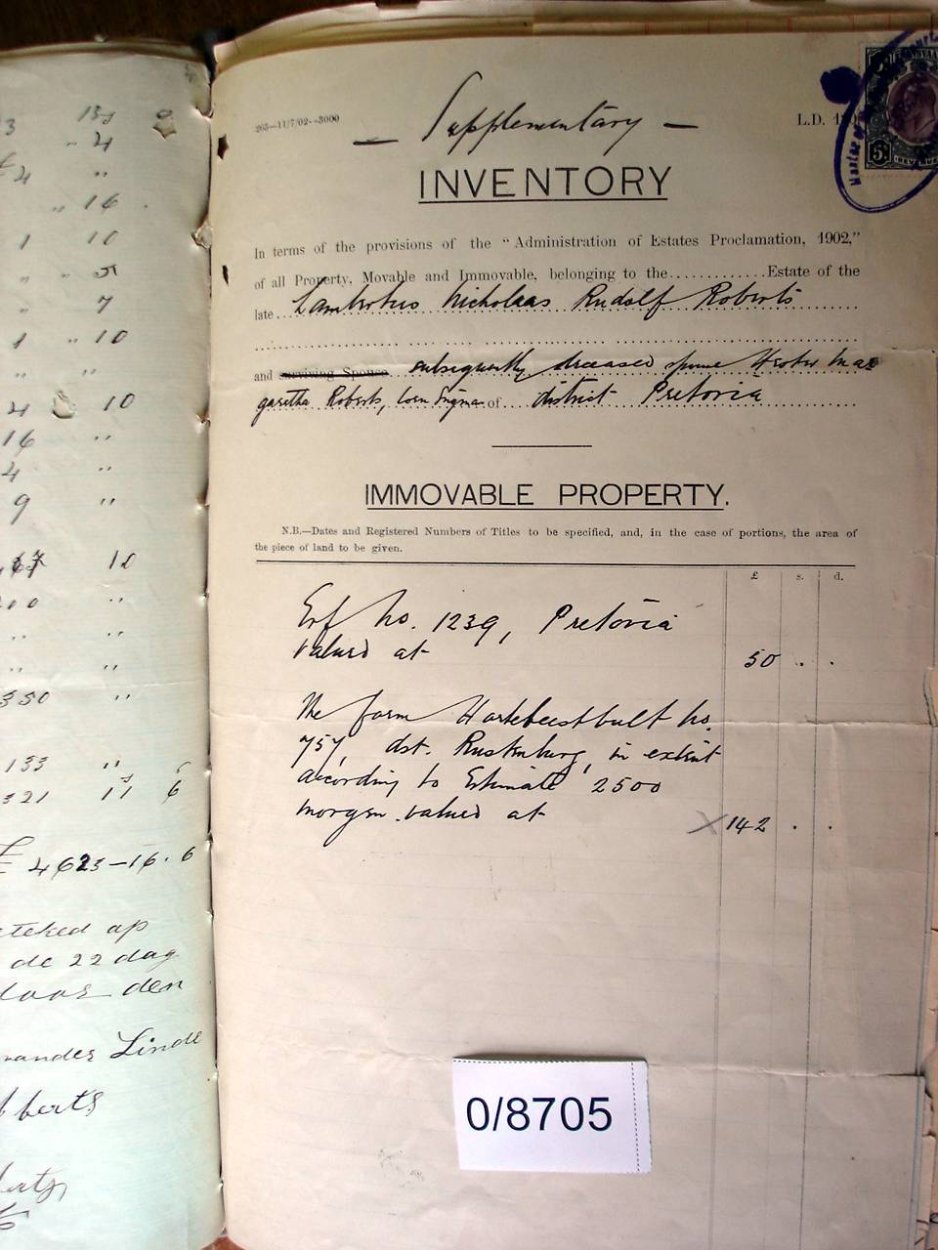 13 0
" 4
4 "
" 16
1 10
" " 5
" 7
1 " 10
" "
4 10
16 "
4 "
9 "
10
"
" "
" "
330 "
133 "
321 11 6
£ 4623-16.6
op
de 22 dag
den
Linde
265—11/7/02--3000
— Supplementary —
L.D.
INVENTORY
In terms of the provisions of the "Administration of Estates Proclamation, 1902,"
of all Property, Movable and Immovable, belonging to the............Estate of the
late... Lambertus Nicholaas Rudolf Roberts
and surviving Spouse subsequently deceased spouse Hester Mar
garetha Roberts, born of district Pretoria
IMMOVABLE PROPERTY.
N.B.—Dates and Registered Numbers of Titles to be specified, and, in the case of portions, the area of
the piece of land to be given.
£ s. d.
Erf No. 1239, Pretoria
valued at
50 . .
The farm Hartebeestbult No.
757, dst. Rustenburg, in extent
according to Estimate 2500
morgen valued at
X 142 . .
0/8705